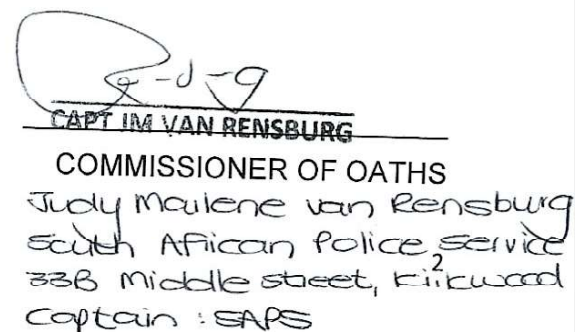 CAPT IM VAN RENSBURG
COMMISSIONER OF OATHS
Judy Maulene van Rensburg
South African Police Service
33B Middle street, Kirkwood
2
Captain : SAPS